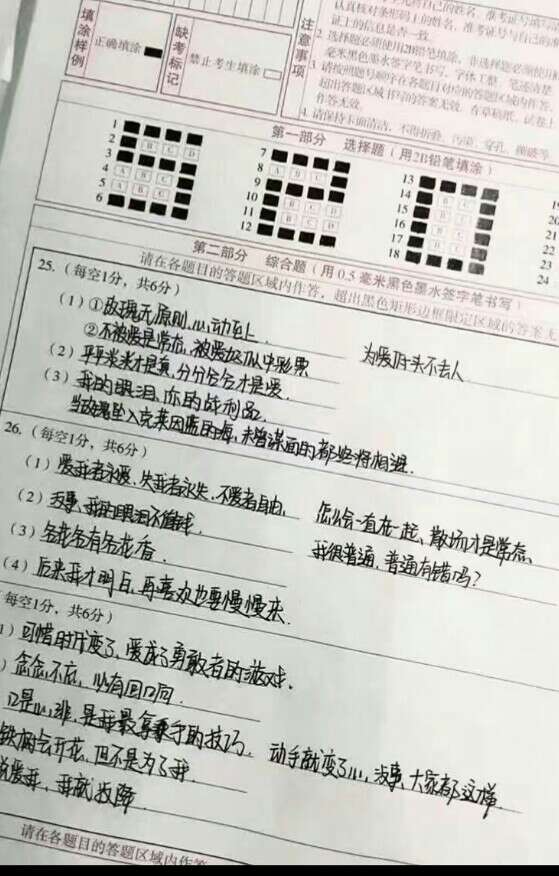 认真核对条形码上的姓名、准考证号与自己的
证上的信息是否一致。
2. 选择题必须使用2B铅笔填涂,非选择题必须使用
毫米黑色墨水签字笔书写,字体工整、笔迹清楚
3. 请按照题号顺序在各题目对应的答题区域内作答
超出答题区域书写的答案无效,在草稿纸、试卷上
作答无效。
4. 请保持卡面清洁,不得折叠、污染、穿孔、撕破等
填涂样例
正确填涂
缺考标记
禁止考生填涂
注意事项
第一部分 选择题(用2B铅笔填涂)
1
2
3
4
5
6
7
8
9
10
11
12
13
14
15
16
17
18
19
20
21
22
23
24
第二部分 综合题(用0.5毫米黑色墨水签字笔书写)
请在各题目的答题区域内作答,超出黑色矩形边框限定区域的答案无
25.(每空1分,共6分)
(1)①玫瑰无原则,心动至上 为爱回头不丢人
②不被爱是常态,被爱如似中彩票
(2)平平米米才是真,分分合合才是爱.
(3)我的眼泪、你的战利品
当玫瑰坠入克莱因蓝的海,未曾谋面的都终将相遇.
26.(每空1分,共6分)
(1)爱我者永爱,失我者永失,不爱者自由. 怎么会一直在一起、散场才是常态、
(2)没事、我的眼泪不值钱. 我很普通,普通有错吗?
(3)各花各有各花香.
(4)后来我才明白,再喜欢也要慢慢来.
每空1分,共6分)
可惜时代变了,爱成了勇敢者的游戏.
念念不忘,必有回响.
口是心非,是我最拿手的技巧. 动手就变了心,没事,大家都这样
铁树会开花,但不是为了我
说爱我,我就投降
请在各题目的答题区域内作答